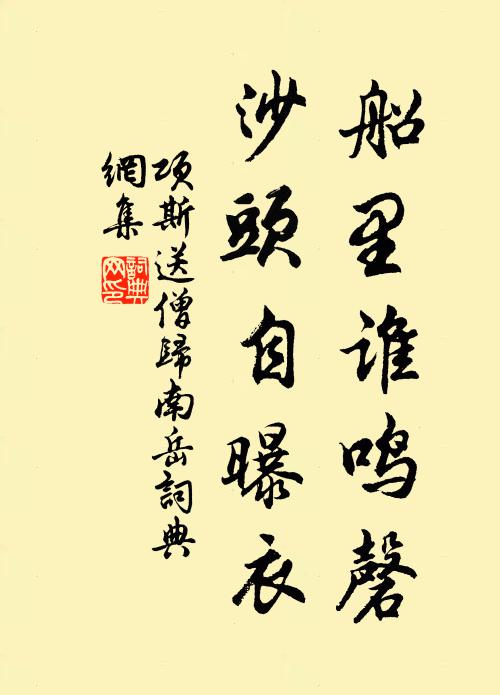 船里谁鸣磬
沙頭自曝衣
项斯送僧歸南岳詞典
網集
詞典网印